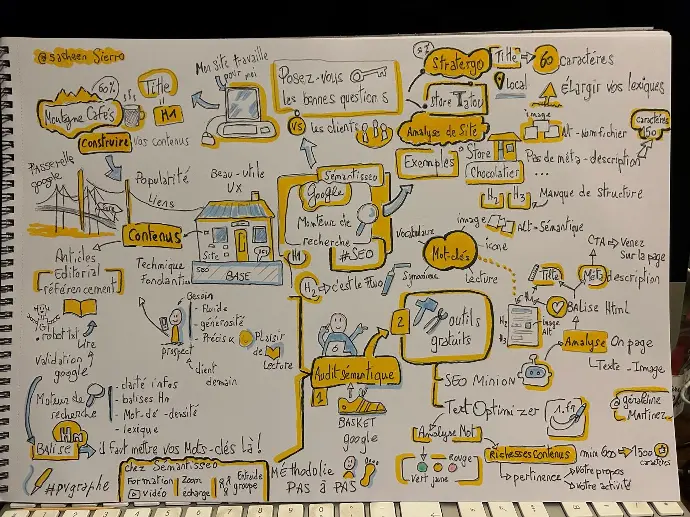 @sacheen Sierro
60%
Title
H1
Montagne Cafés
Construire vos contenus
Mon site travaille
pour moi
Posez-vous
les bonnes questions
VS les clients
Stratergo
Store Tatou
Title → 60 caractères
Local
Élargir vos lexiques
Analyse de Site
image
Alt - nom fichier
caractères
150
Exemples
Store
Chocolatier
Pas de méta-description
...
H2 H3
Manque de structure
Passerelle
google
Popularité
Liens
Beau-utile
UX
Contenus
Site
SEO
BASE
Technique
fondantin
Sémantisseo
Google
Moteur de
recherche
#SEO
H1
H2 c'est le fluo
Vocabulaire
image
Alt-Sémantique
icone
Mot-clés
Lecture
Synonimes
CTA → Venez
sur la page
Title
Meta description
Balise Html
H2
H3
Image
Alt
Analyse On page
Texte - Image
Articles
Editorial
référencement
robot ist
Lire
Validation
google
Besoin
- fluide
- générosité
- Précis
Plaisir
de
Lecture
prospect
client
demain
Moteurs de
recherche
- clarté infos
- balises Hn
- Mot-clé - densité
- lexique
Balise
Hn
il faut mettre vos Mots-clés là !
#pvgraphe
Chez Sémantisseo
Formation
vidéo
Zoom
échange
Entraide
groupe
Audit sémantique
1
BASKET
google
Méthodolie
PAS à PAS
2
outils
gratuits
SEO Minion
Text Optimizer
1.fr
Analyse Mot
Rouge
Vert
jaune
Richesses Contenus
min 600 → 1500
caractères
pertinence
votre propos
votre activité
@géraldine
Martinez